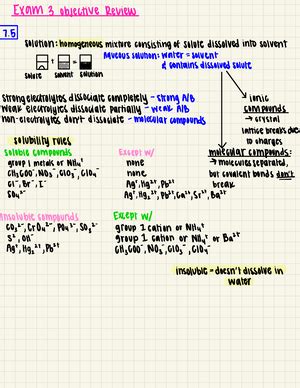 Exam 3 objective Review
7.5
solution: homogeneous mixture consisting of solute dissolved into solvent
Aqueous solution: water = solvent
& contains dissolved solute
+ =
solute solvent solution
strong electrolytes dissociate completely - strong A/B
weak electrolytes dissociate partially - weak A/B
non-electrolytes don't dissociate - molecular compounds
ionic
compounds
→ crystal
lattice breaks due
to charges
molecular compounds:
→ molecules separated,
but covalent bonds don't
break
solubility rules
Soluble compounds Except w/
group 1 metals or NH₄⁺ none
CH₃COO⁻, NO₃⁻, ClO₃⁻, ClO₄⁻ none
Cl⁻, Br⁻, I⁻ Ag⁺, Hg₂²⁺, Pb²⁺
SO₄²⁻ Ag⁺, Hg₂²⁺, Pb²⁺, Ca²⁺, Sr²⁺, Ba²⁺
Insoluble compounds Except w/
CO₃²⁻, CrO₄²⁻, PO₄³⁻, SO₃²⁻ group 1 cation or NH₄⁺
S²⁻, OH⁻ group 1 cation or NH₄⁺ or Ba²⁺
Ag⁺, Hg₂²⁺, Pb²⁺ CH₃COO⁻, NO₃⁻, ClO₃⁻, ClO₄⁻
insoluble = doesn't dissolve in
water